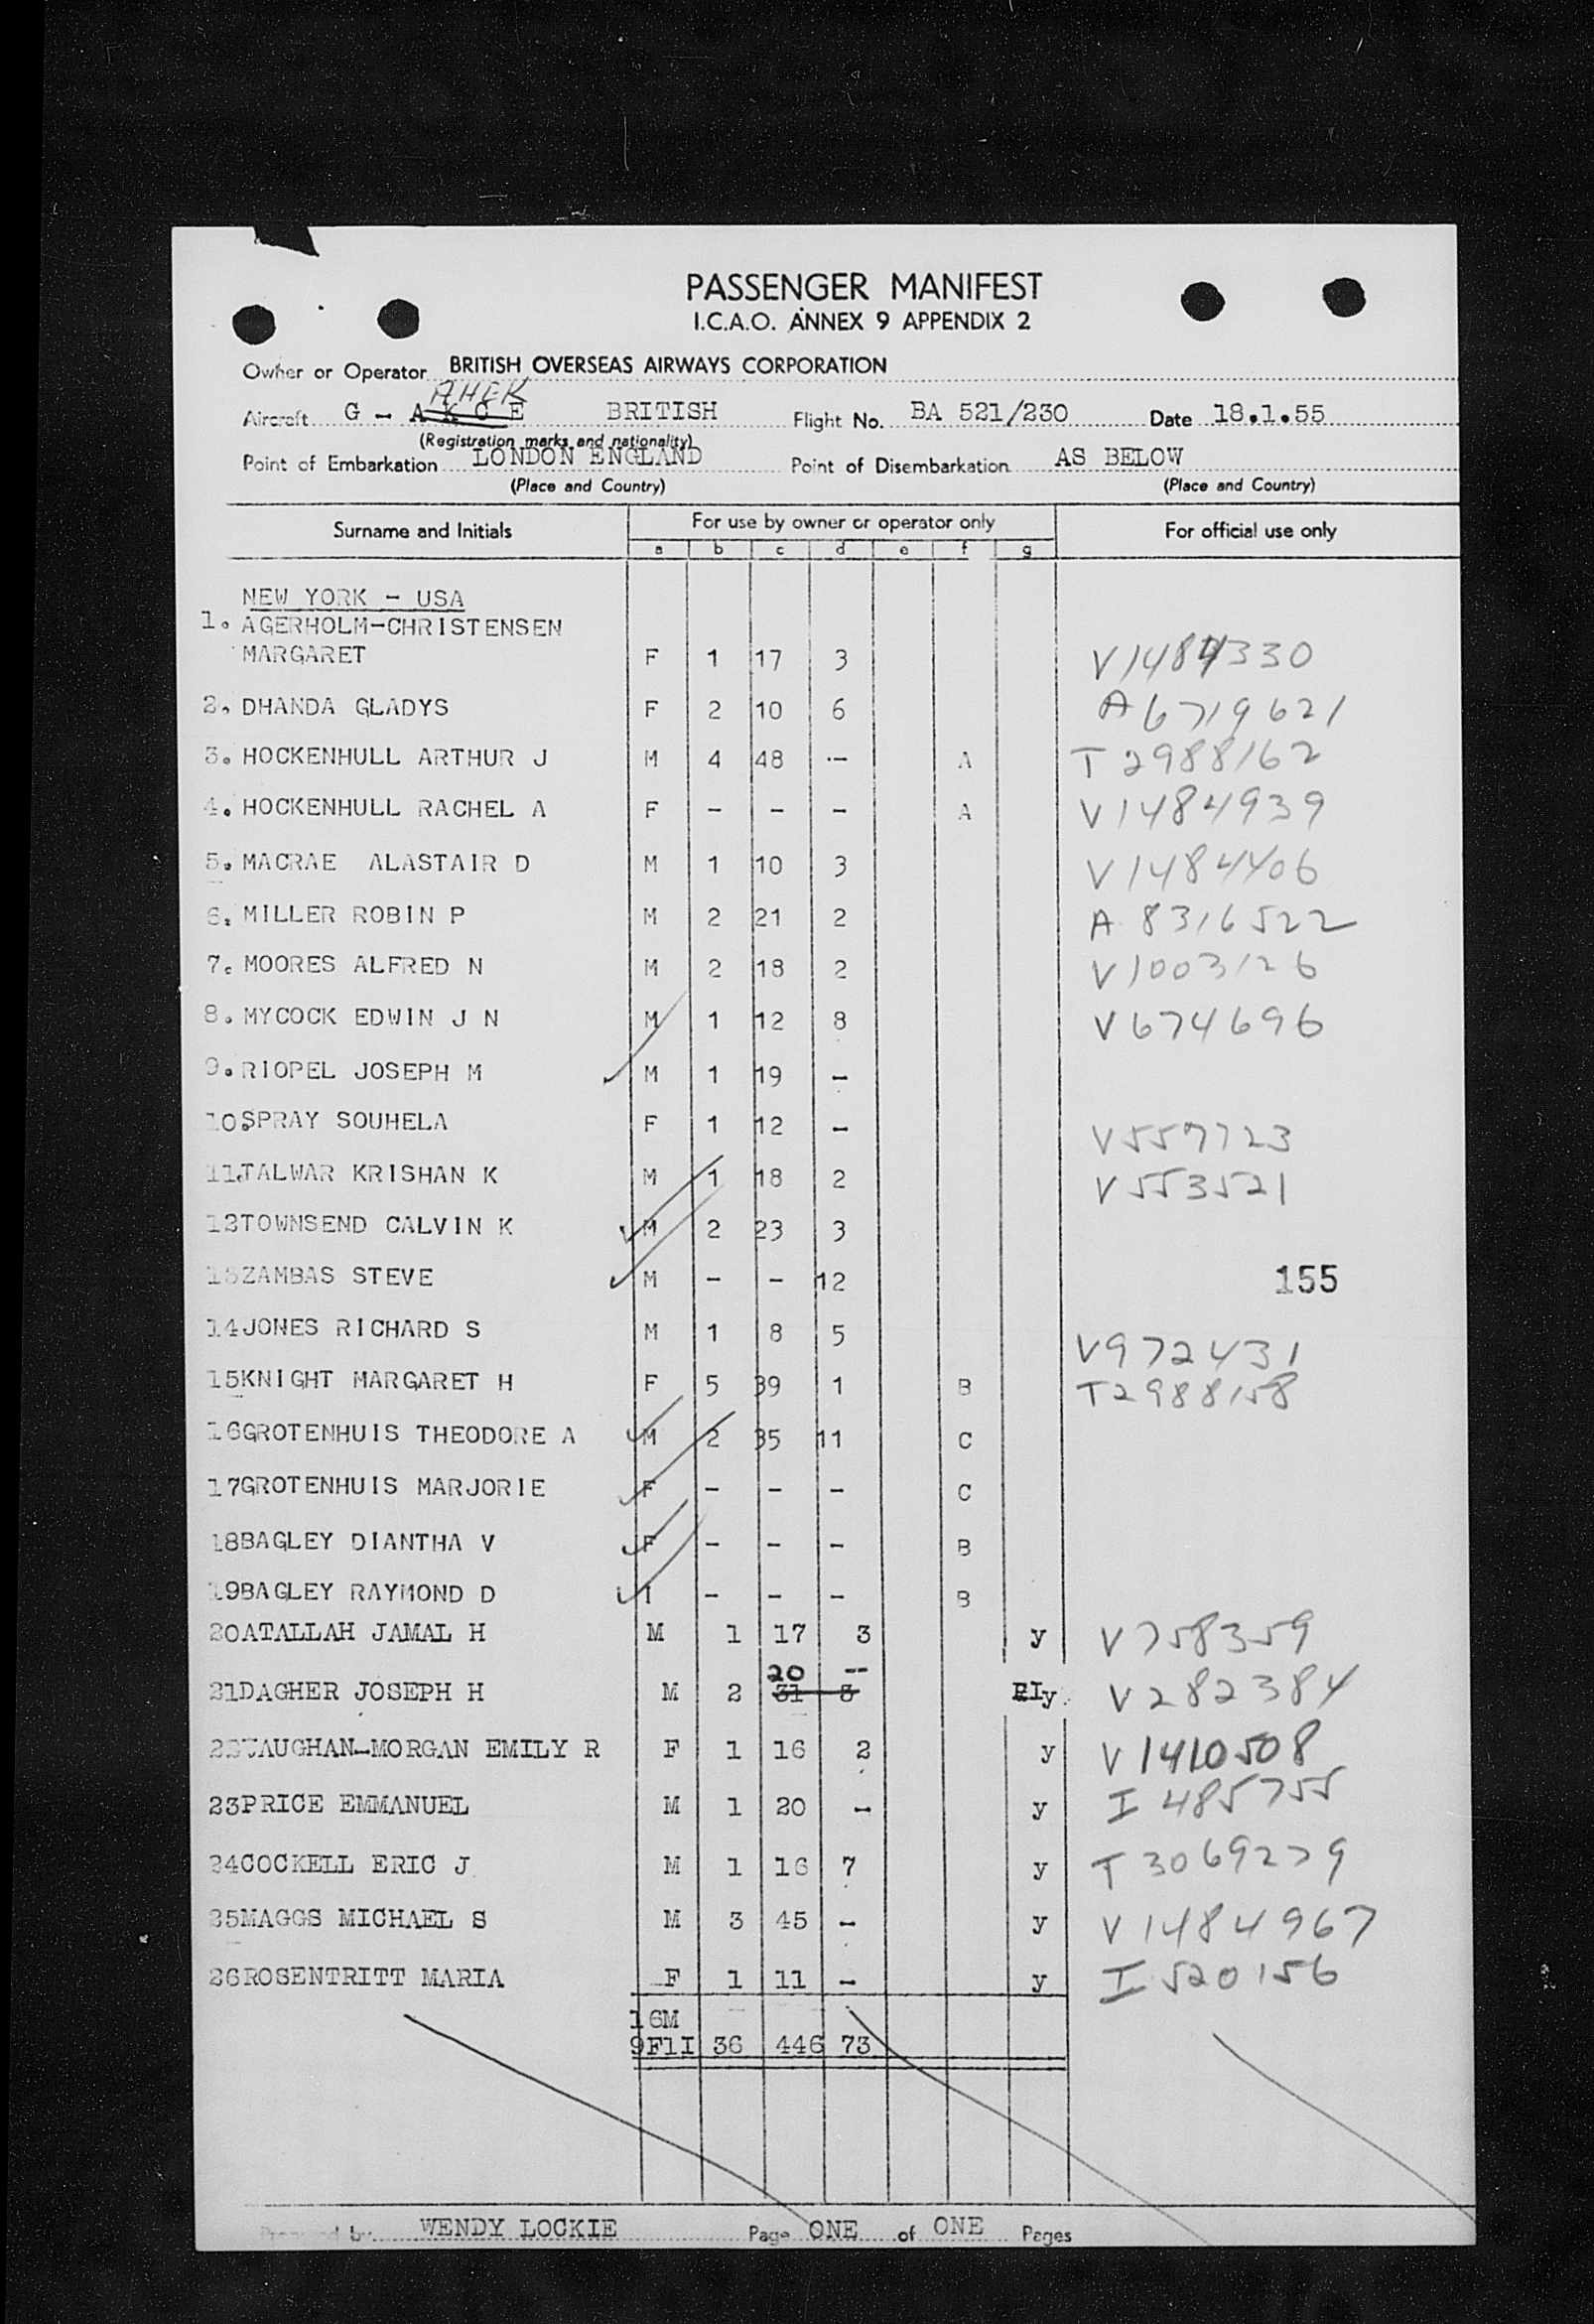 PASSENGER MANIFEST
I.C.A.O. ANNEX 9 APPENDIX 2
Owner or Operator BRITISH OVERSEAS AIRWAYS CORPORATION
AHEK
Aircraft G - A K C E BRITISH Flight No. BA 521/230 Date 18.1.55
(Registration marks and nationality)
Point of Embarkation LONDON ENGLAND Point of Disembarkation AS BELOW
(Place and Country) (Place and Country)
Surname and Initials For use by owner or operator only For official use only
a b c d e f g
NEW YORK - USA
1. AGERHOLM-CHRISTENSEN
MARGARET F 1 17 3 V1484330
2. DHANDA GLADYS F 2 10 6 A6719621
3. HOCKENHULL ARTHUR J M 4 48 - A T2988162
4. HOCKENHULL RACHEL A F - - - A V1484939
5. MACRAE ALASTAIR D M 1 10 3 V1484406
6. MILLER ROBIN P M 2 21 2 A 8316522
7. MOORES ALFRED N M 2 18 2 V1003126
8. MYCOCK EDWIN J N M 1 12 8 V674696
9. RIOPEL JOSEPH M M 1 19 -
10. SPRAY SOUHELA F 1 12 - V557723
11. TALWAR KRISHAN K M 1 18 2 V553521
12 TOWNSEND CALVIN K M 2 23 3
13 ZAMBAS STEVE M - - 12 155
14 JONES RICHARD S M 1 8 5 V972431
15 KNIGHT MARGARET H F 5 39 1 B T2988158
16 GROTENHUIS THEODORE A M 2 35 11 C
17 GROTENHUIS MARJORIE F - - - C
18 BAGLEY DIANTHA V F - - - B
19 BAGLEY RAYMOND D I - - - B
20 ATALLAH JAMAL H M 1 17 3 y V758359
20 --
21 DAGHER JOSEPH H M 2 31 3 y V282384
22 VAUGHAN-MORGAN EMILY R F 1 16 2 y V1410508
23 PRICE EMMANUEL M 1 20 - y I 485755
24 COCKELL ERIC J M 1 16 7 y T3069279
25 MAGGS MICHAEL S M 3 45 - y V1484967
26 ROSENTRITT MARIA F 1 11 - y I 520156
16M
9F1I 36 446 73
Prepared by WENDY LOCKIE Page ONE of ONE Pages